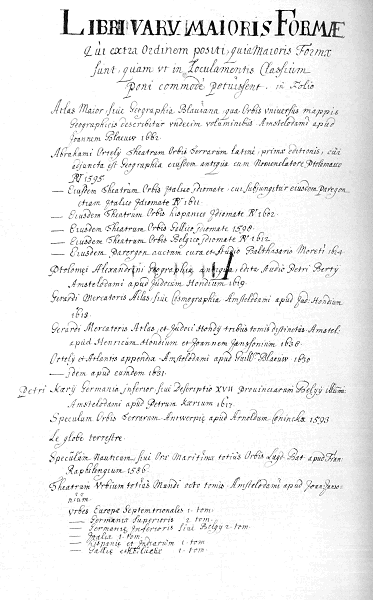 LIBRI VARII MAIORIS FORMÆ
Qui extra Ordinem positi, quia Maioris Formæ
sunt, quam vt in Loculamentis Classium
Poni commodè potuissent. in Folio
Atlas Maior, siue Geographia Blauiana qua Orbis vniuersus mappis
Geographicis describitur vndecim voluminibus Amstelodami apud
Joannem Blaeuw 1662.
Abrahami Ortelÿ Theatrum Orbis Terrarum latine prime editionis, cui
adjuncta est Geographia eiusdem antiqua cum Nomenclatore Ptholomaico
1595
— Eiusdem Theatrum Orbis Italico idiomate, cui subjungitur eiusdem Parergon
etiam Italico Idiomate 1611
— Eiusdem Theatrum Orbis hispanico Idiomate 1602
— Eiusdem Theatrum Orbis Gallico idiomate 1598
— Eiusdem Theatrum Orbis Belgico idiomate 1612
— Eiusdem Parergon auctum cura et studio Balthasaris Moreti 1624
Ptolomei Alexandrini Geographia antiqua, edita studio Petri Bertÿ
Amstelodami apud Judocum Hondium 1619
Gerardi Mercatoris Atlas, siue Cosmographia Amstelodami apud Jud: Hondium
1618.
Gerardi Mercatoris Atlas, et Judoci Hondÿ tribus tomis distinctus Amstel.
apud Henricum Hondium et Joannem Janssonium 1638.
Ortelÿ et Atlantis appendix Amstelodami apud Guill. Blaeuw 1630
— Idem apud eumdem 1631.
Petri Kærÿ Germania inferior siue Descriptio XVII prouinciarum Belgÿ
Amstelodami apud Petrum Kærium 1617.
Speculum Orbis Terrarum Antwerpiæ apud Arnoldum Coninckx 1593
Le globe terrestre
Speculum Nauticum siue Ora Maritima totius Orbis Lugd. Bat. apud Fran.
Raphelengium 1586
Theatrum Vrbium totius Mundi octo tomis. Amstelodami apud Jans:
nium
Vrbes Europe Septemtrionales 1. tom.
— Germanie Superioris 2. tom.
— Germanie Inferioris siue Belgÿ 2. tom.
— Italia 1. tom.
— Hispanie et Indiarum 1. tom.
— Gallie et Heluetie 1. tom.